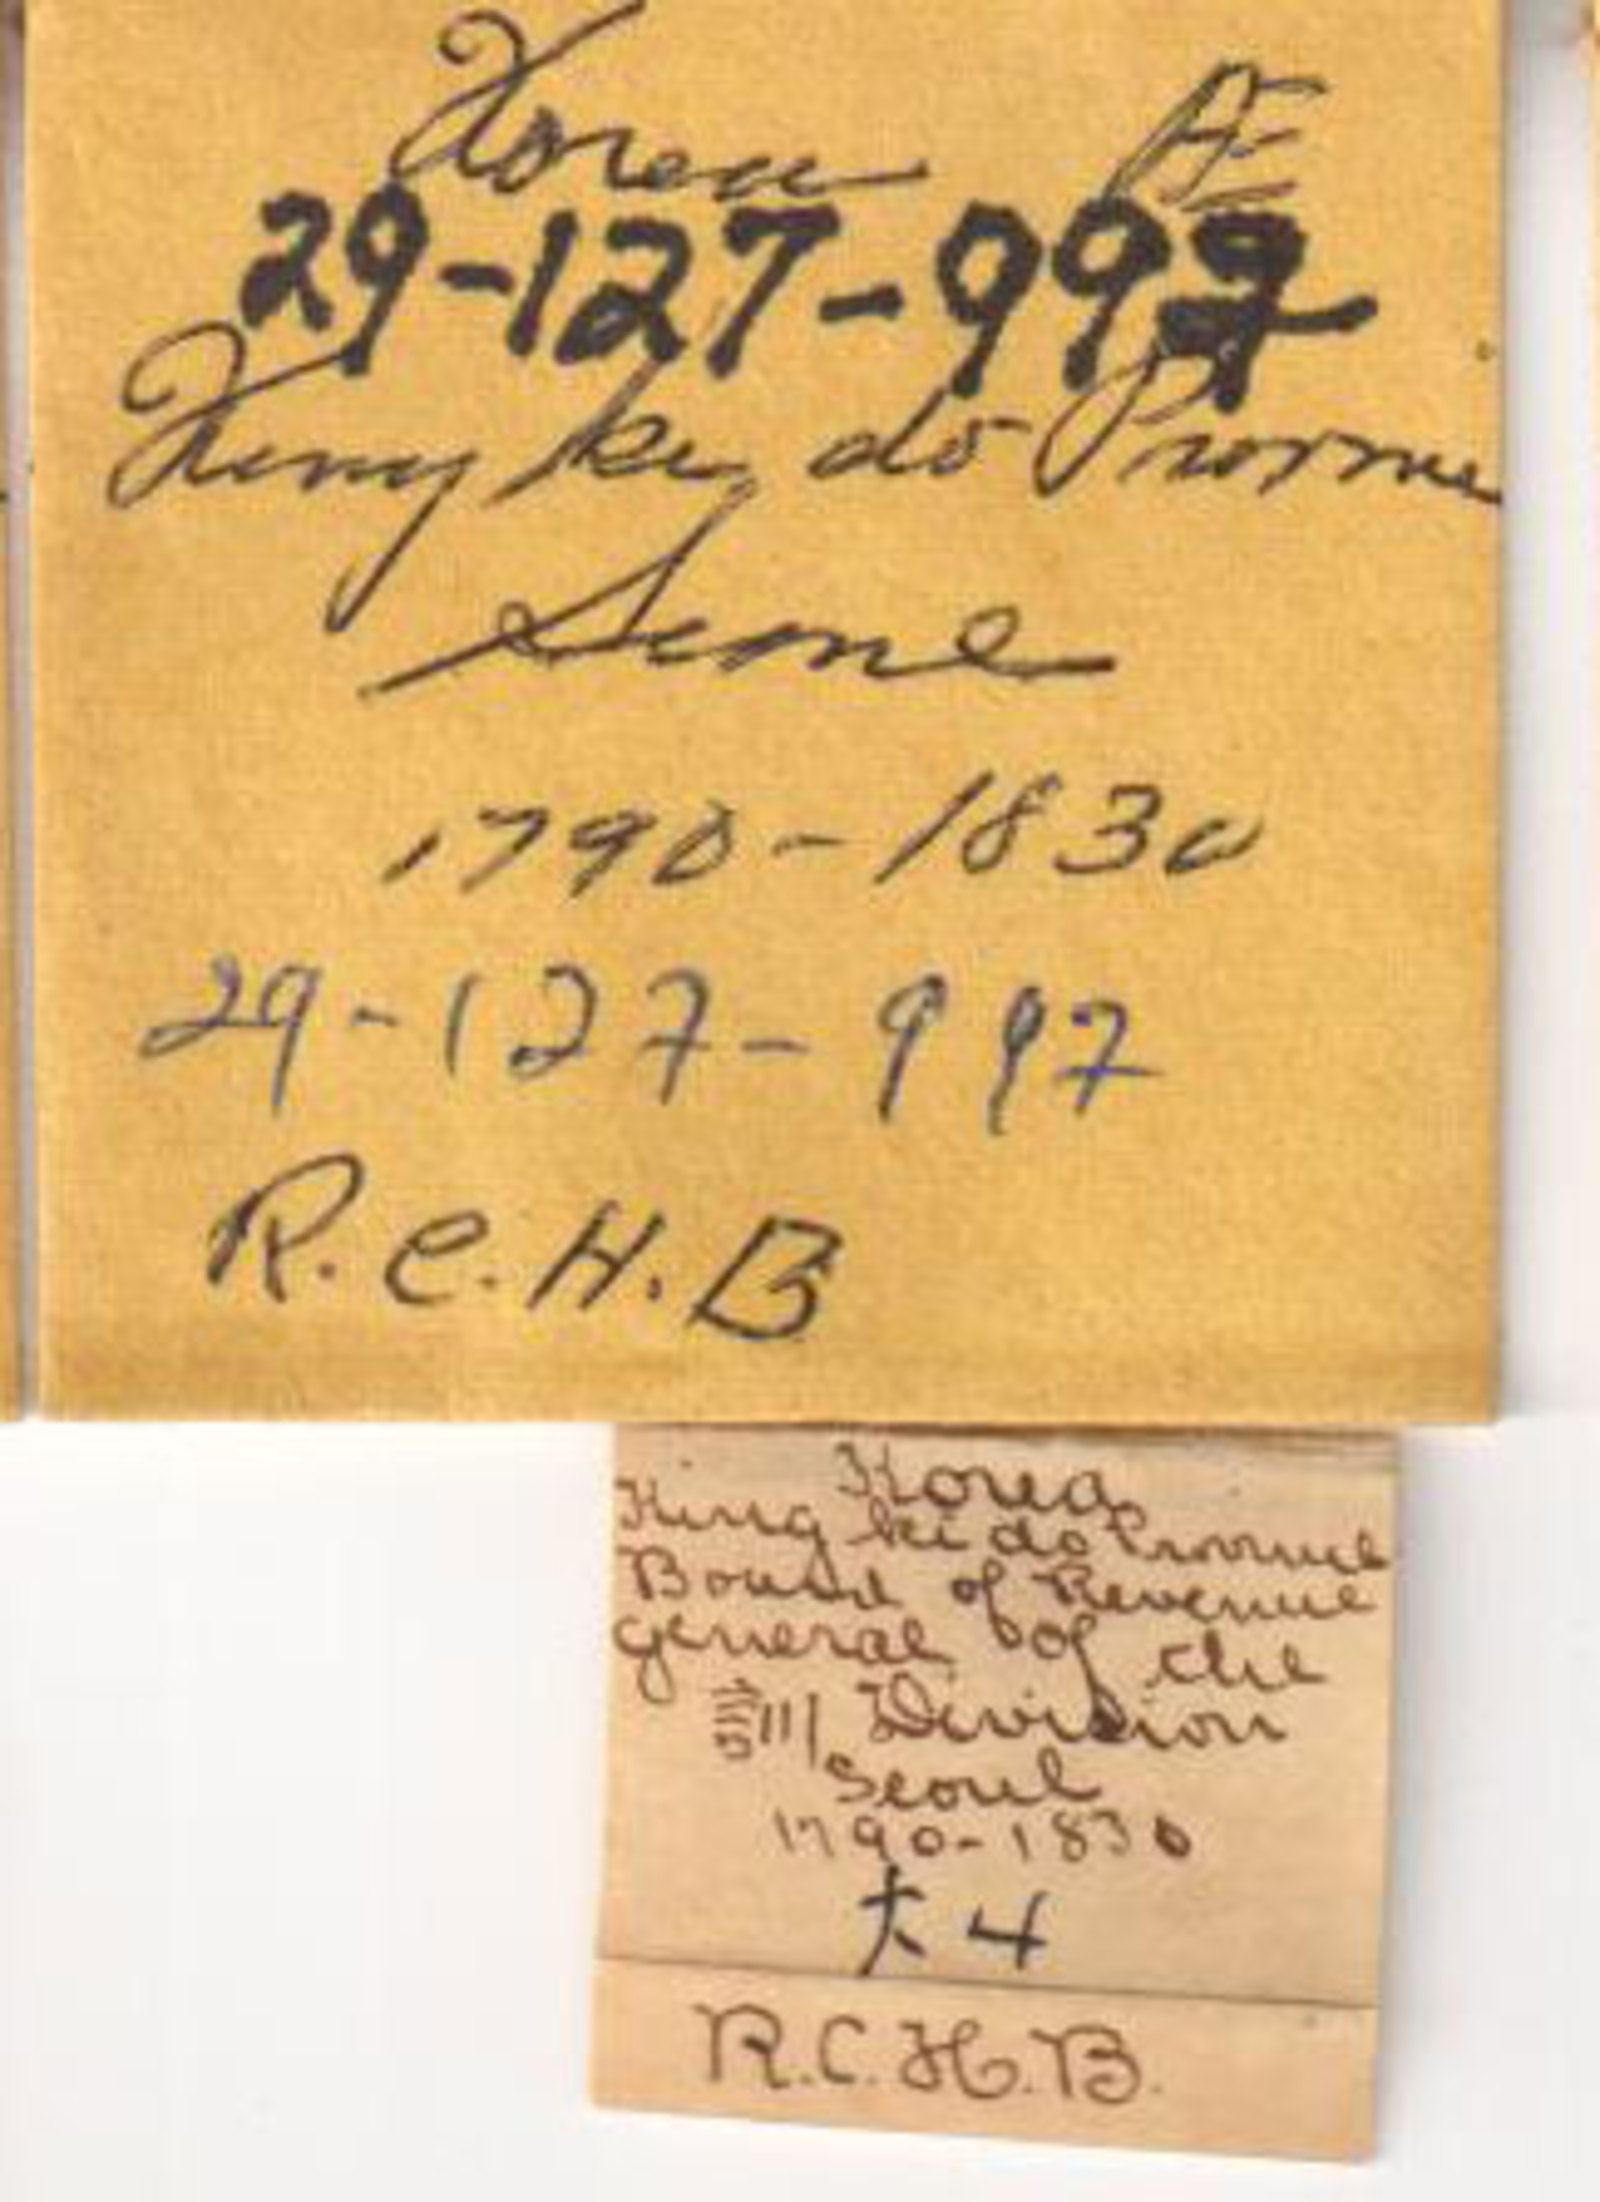 Korea Æ
29-127-997
King ki do Province
Seoul
1790-1830
29-127-997
R.C.H.B
Korea
King ki do Province
Board of Revenue
general of the
訓 Division
Seoul
1790-1830
大 4
R.C.H.B.